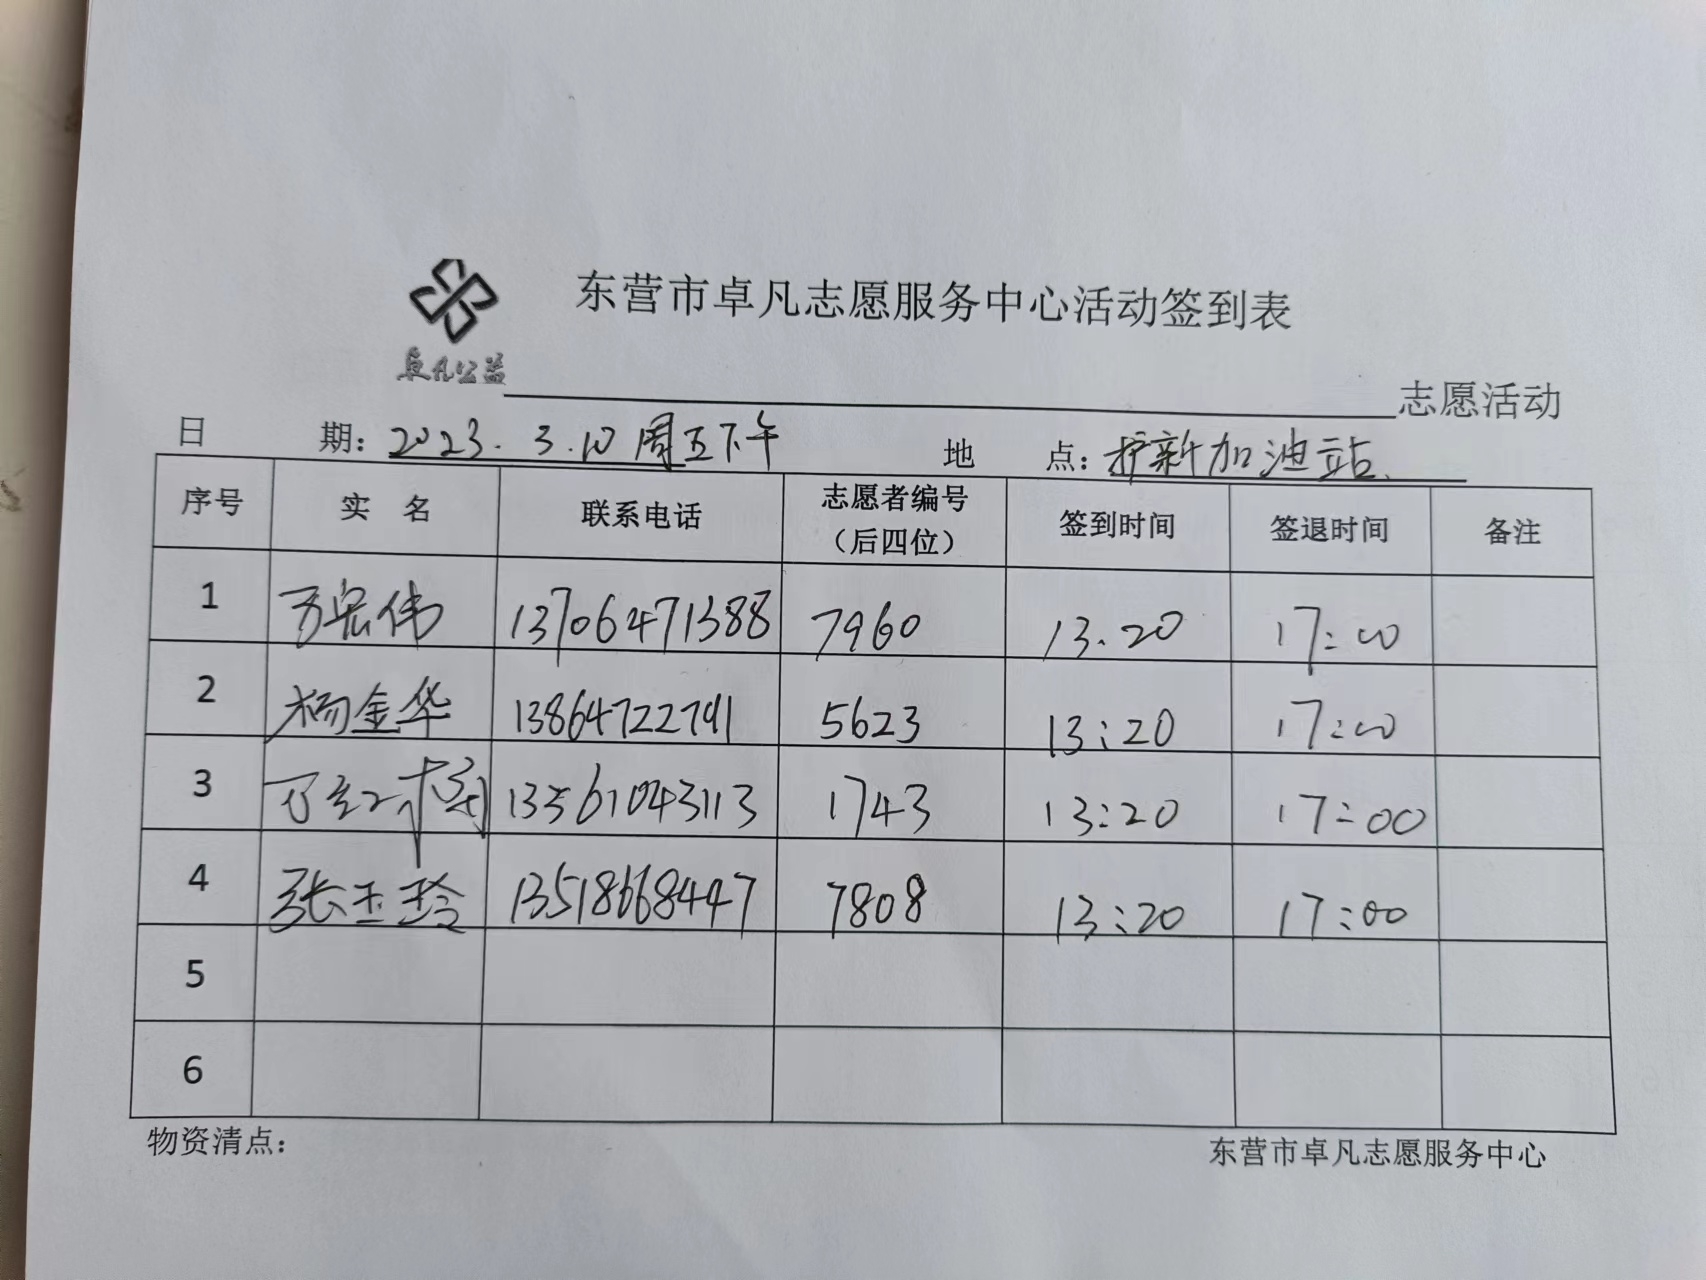 东营市卓凡志愿服务中心活动签到表
卓凡公益
志愿活动
日 期：2023.3.10 周五下午 地 点：护新加油站
序号 实 名 联系电话 志愿者编号（后四位） 签到时间 签退时间 备注
1 万宏伟 13706471388 7960 13.20 17:00
2 杨金华 13864722791 5623 13:20 17:00
3 13561043113 1743 13:20 17:00
4 张玉玲 13518668447 7808 13:20 17:00
5
6
物资清点： 东营市卓凡志愿服务中心